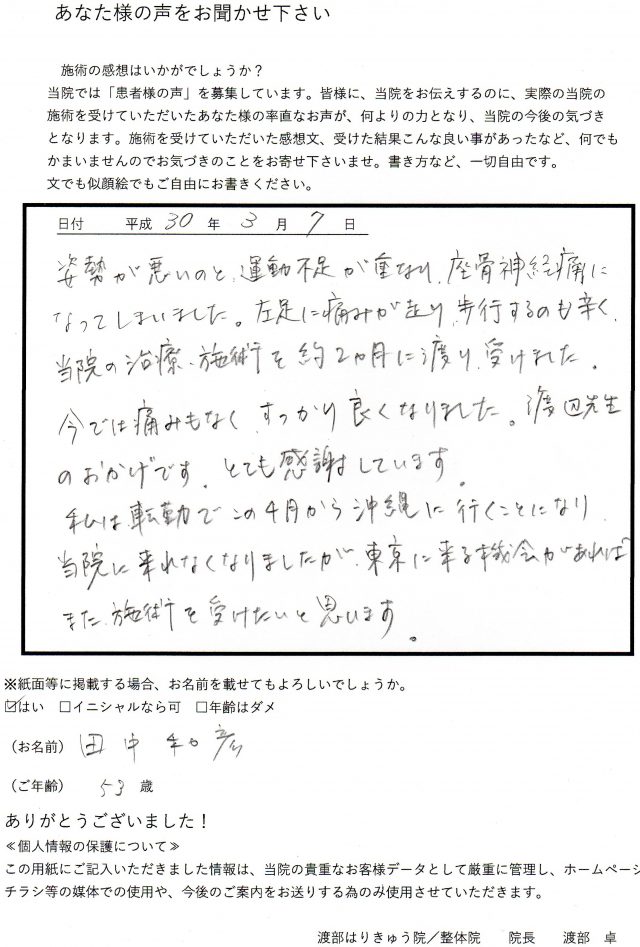 あなた様の声をお聞かせ下さい
施術の感想はいかがでしょうか？
当院では「患者様の声」を募集しています。皆様に、当院をお伝えするのに、実際の当院の
施術を受けていただいたあなた様の率直なお声が、何よりの力となり、当院の今後の気づき
となります。施術を受けていただいた感想文、受けた結果こんな良い事があったなど、何でも
かまいませんのでお気づきのことをお寄せ下さいませ。書き方など、一切自由です。
文でも似顔絵でもご自由にお書きください。
日付 平成 30 年 3 月 7 日
姿勢が悪いのと、運動不足が重なり、座骨神経痛に
なってしまいました。左足に痛みが走り、歩行するのも辛く、
当院の治療、施術を約2ヵ月に渡り、受けました。
今では痛みもなく、すっかり良くなりました。渡辺先生
のおかげです。とても感謝しています。
私は、転勤でこの4月から沖縄に行くことになり、
当院に来れなくなりましたが、東京に来る機会があれば
また、施術を受けたいと思います。
※紙面等に掲載する場合、お名前を載せてもよろしいでしょうか。
☑はい □イニシャルなら可 □年齢はダメ
（お名前） 田中 和彦
（ご年齢） 53 歳
ありがとうございました！
≪個人情報の保護について≫
この用紙にご記入いただきました情報は、当院の貴重なお客様データとして厳重に管理し、ホームページ
チラシ等の媒体での使用や、今後のご案内をお送りする為のみ使用させていただきます。
渡部はりきゅう院／整体院 院長 渡部 卓